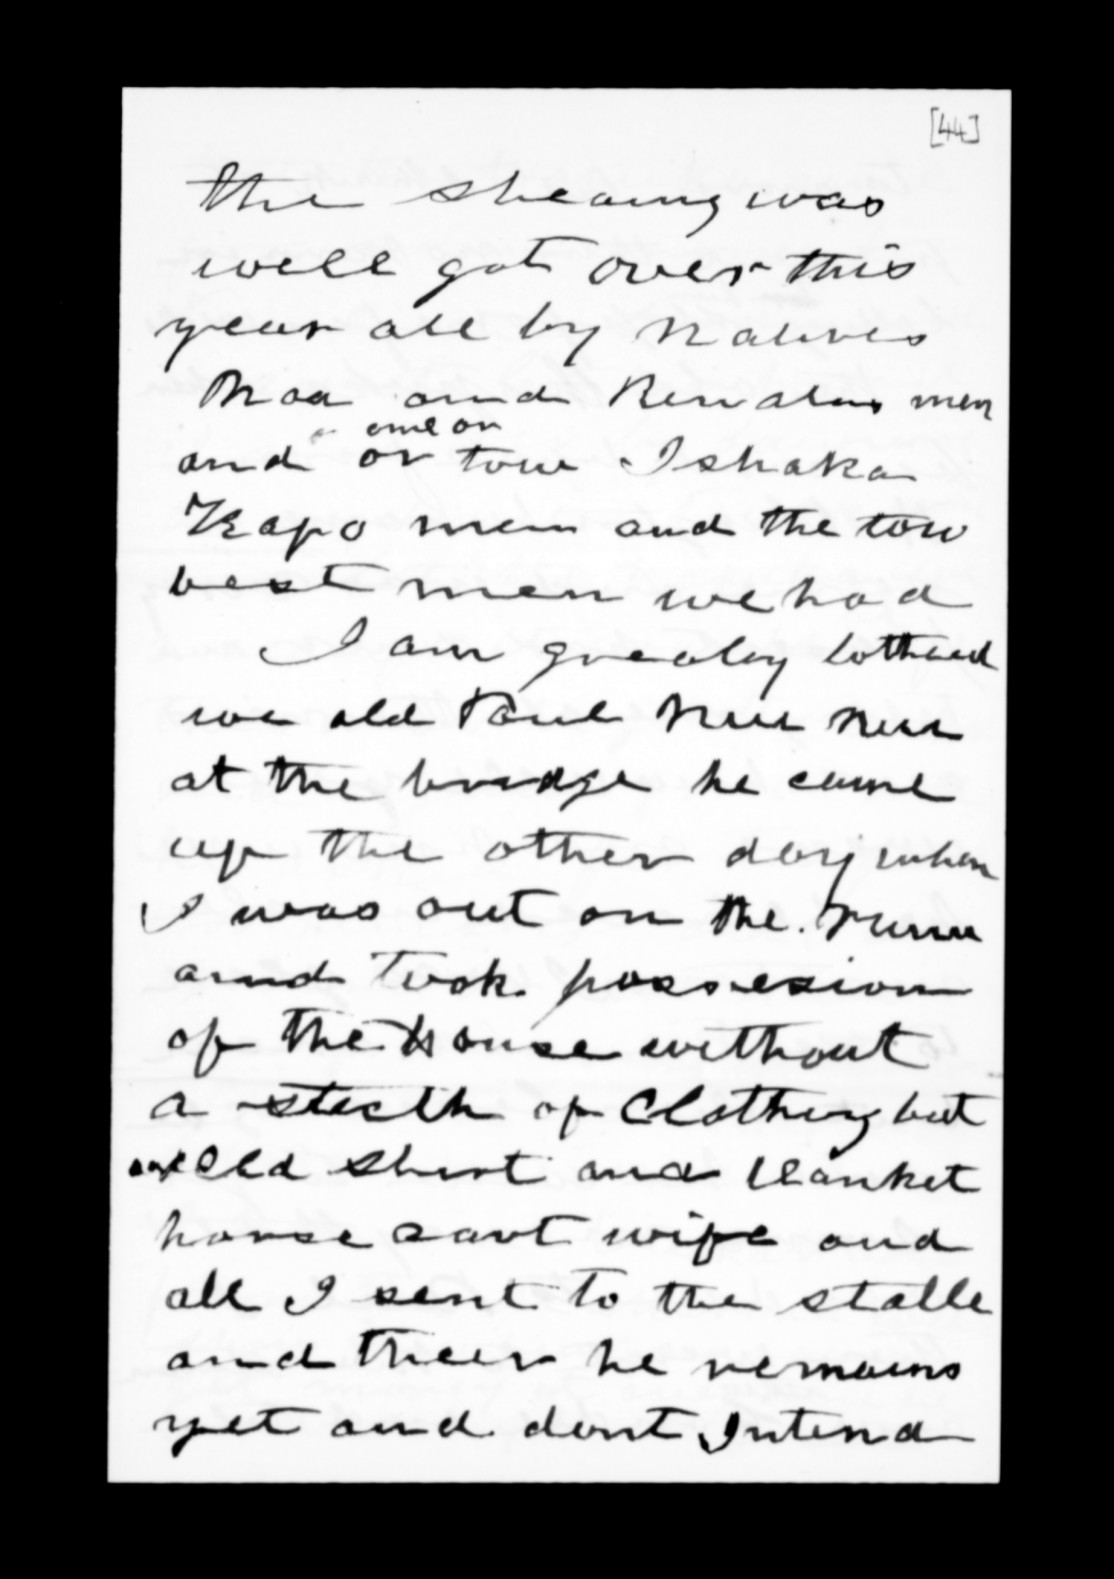 [44]
the sheaing was
well got over this
year all by Natives
Moa and Renatas men
and one or
or tow Ishaka
Kapo men and the tow
best men we had
I am grealey bothued
we old Paul
at the bridge he came
up the other day when
I was out on the runn
and took possesion
of the House without
a of Clothing but
old Shirt and blanket
horse cart wife and
all I sent to the stalle
and theer he remains
yet and dont Intend